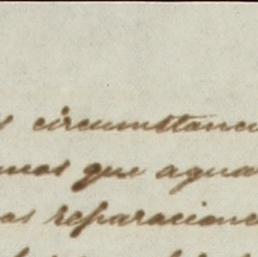 s circumstanci
mos que agua
as reparacione